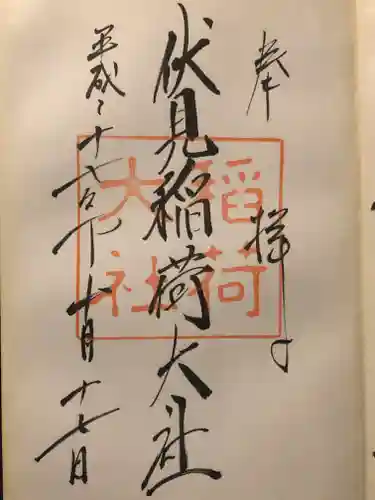 奉拝
伏見稲荷大社
平成二十七年十月十七日
稲荷
大社